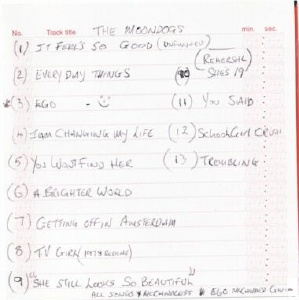 No. Track title THE MOONDOGS min. sec.
(1) IT FEEL'S SO GOOD (UNFINISHED)
(2) EVERYDAY THINGS (10) (REHERSAL) SHE'S 19
*(3) EGO - (11) YOU SAID
(4) I AM CHANGING MY LIFE (12) SCHOOLGIRL CRUSH
(5) YOU WONT FIND HER (13) TROUBLING
(6) A BRIGHTER WORLD
(7) GETTING OFF IN AMSTERDAM
(8) TV GIRL
(9) "SHE STILL LOOKS SO BEAUTIFUL"
ALL SONGS * EGO